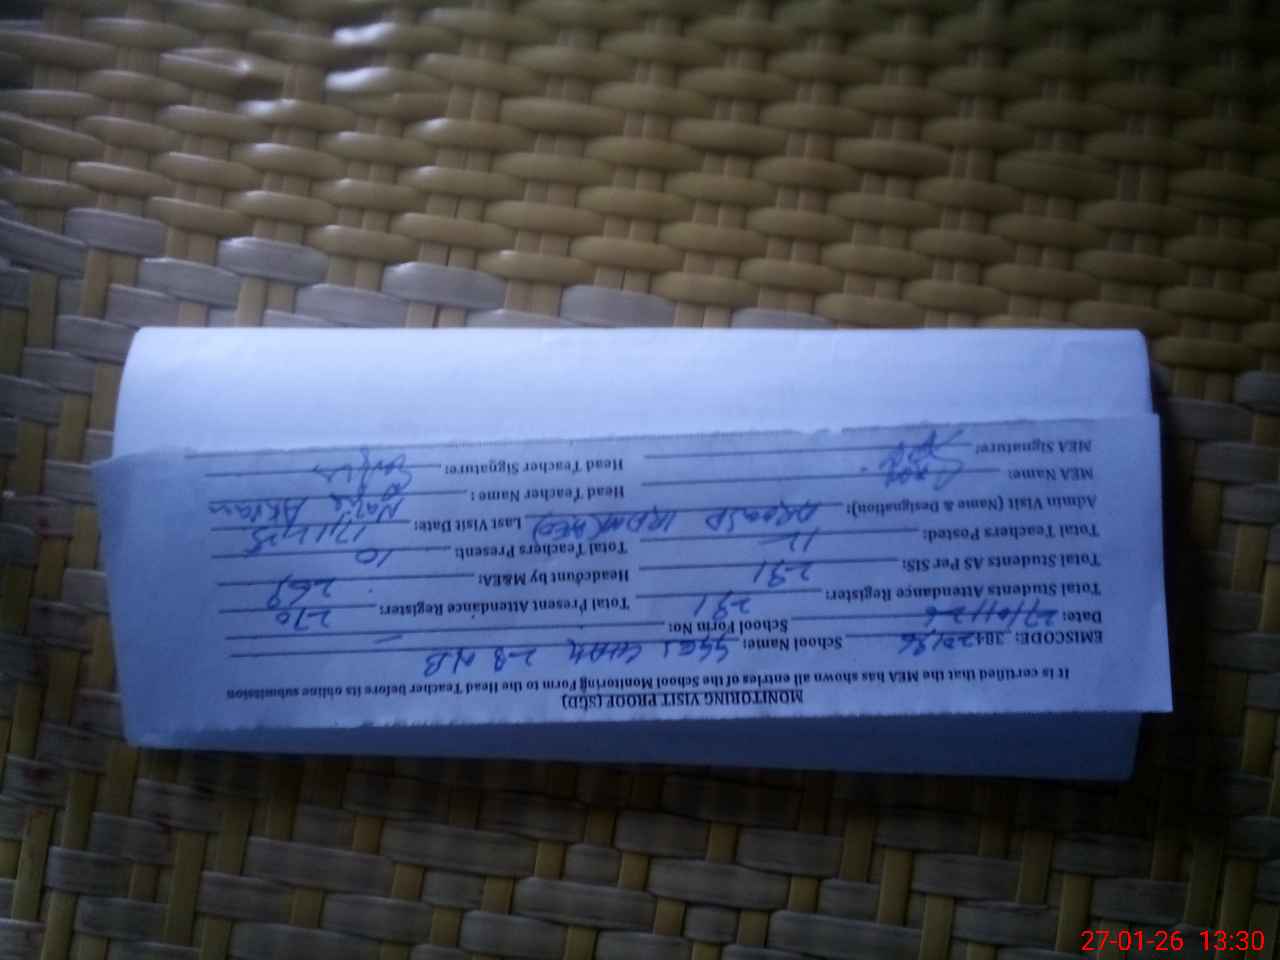 MONITORING VISIT PROOF (SGD)
It is certified that the MEA has shown all entries of the School Monitoring Form to the Head Teacher before its online submission
EMISCODE: 384201 School Name: CHAK 28 NB
Date: 27/01/26 School Form No:
Total Students Attendance Register: 291 Total Present Attendance Register: 270
Total Students AS Per SIS: 291 Headcount by M&EA: 269
Total Teachers Posted: 12 Total Teachers Present: 10
Admin Visit (Name & Designation): (AEO) Last Visit Date:
MEA Name: Head Teacher Name: Akram
MEA Signature: Head Teacher Signature:
27-01-26 13:30